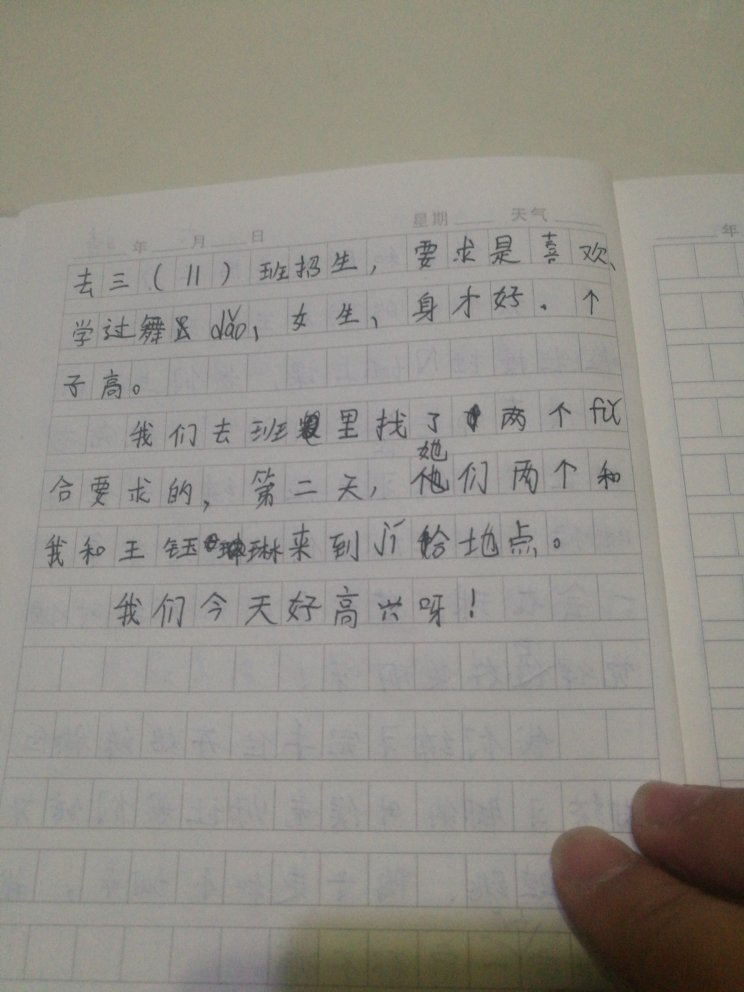 年 月 日 星期 天气
年
去三（11）班招生，要求是喜欢、
学过舞dǎo，女生、身才好、个
子高。
我们去班里找了两个fú
合要求的，第二天，她们两个和
我和王钰琳来到jí合地点。
我们今天好高兴呀！